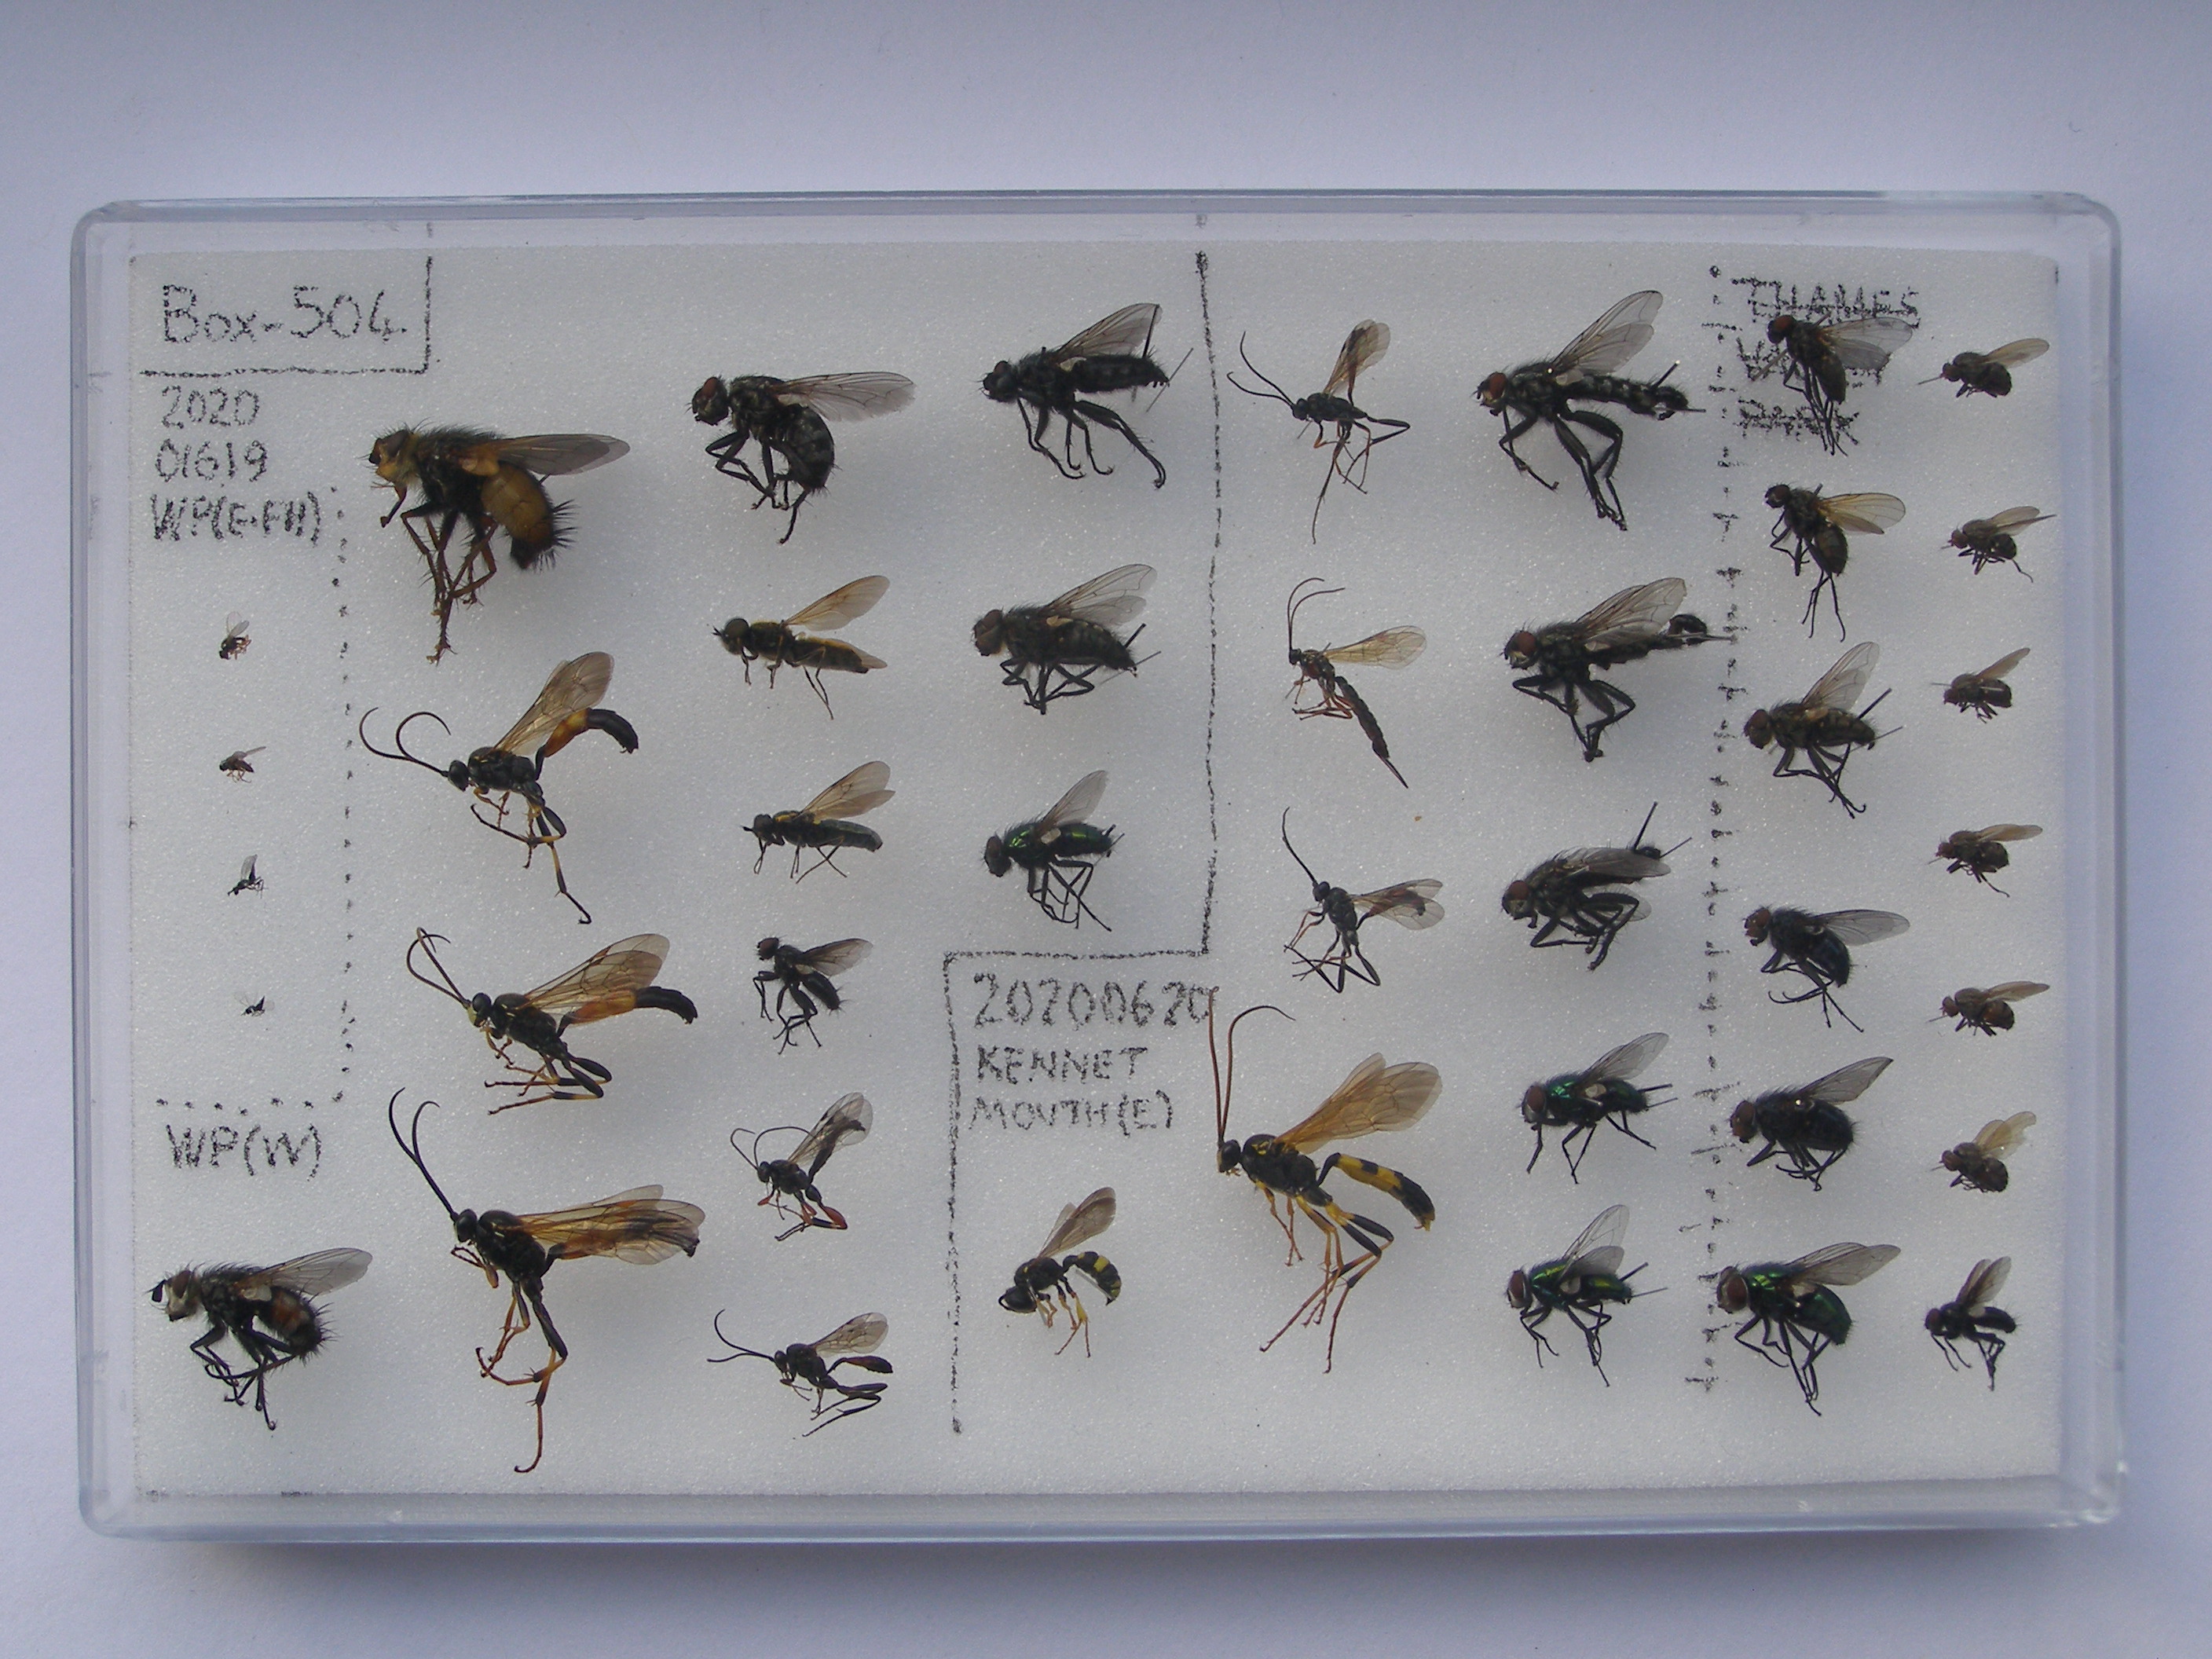 Box-504.
2020
01619
WP(E·FH)
WP(W)
20200620
KENNET
MOUTH(E)
THAMES